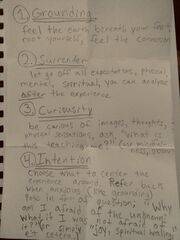 1.) Grounding
feel the earth beneath your feet,
root yourself, feel the connection
2.) Surrender
let go all expectations, physical,
mental, spiritual, you can analyze
after the experience
3.) Curiousity
be curious of images, thoughts,
physical sensations, ask, "What is
this teaching me?" (or mindful-
ness, about
4.) Intention
Choose what to center the
experience around. Refer back
when anxious, like grounding.
Pose in form of question; "Why
am I afraid of the unknown,
What if it was not afraid of
it?" or simply "joy, spiritual